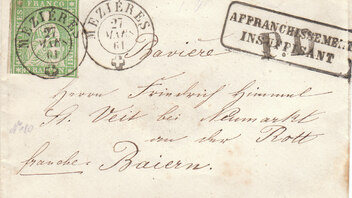 FRANCO
MEZIÈRES
27
MARS
61
MEZIÈRES
27
MARS
61
AFFRANCHISSEMENT
INSUFFISANT
P.D.
Bavière
Herrn Friedrich Himmel
St. Veit bei Neumarkt
an der Rott
franko
Baiern.